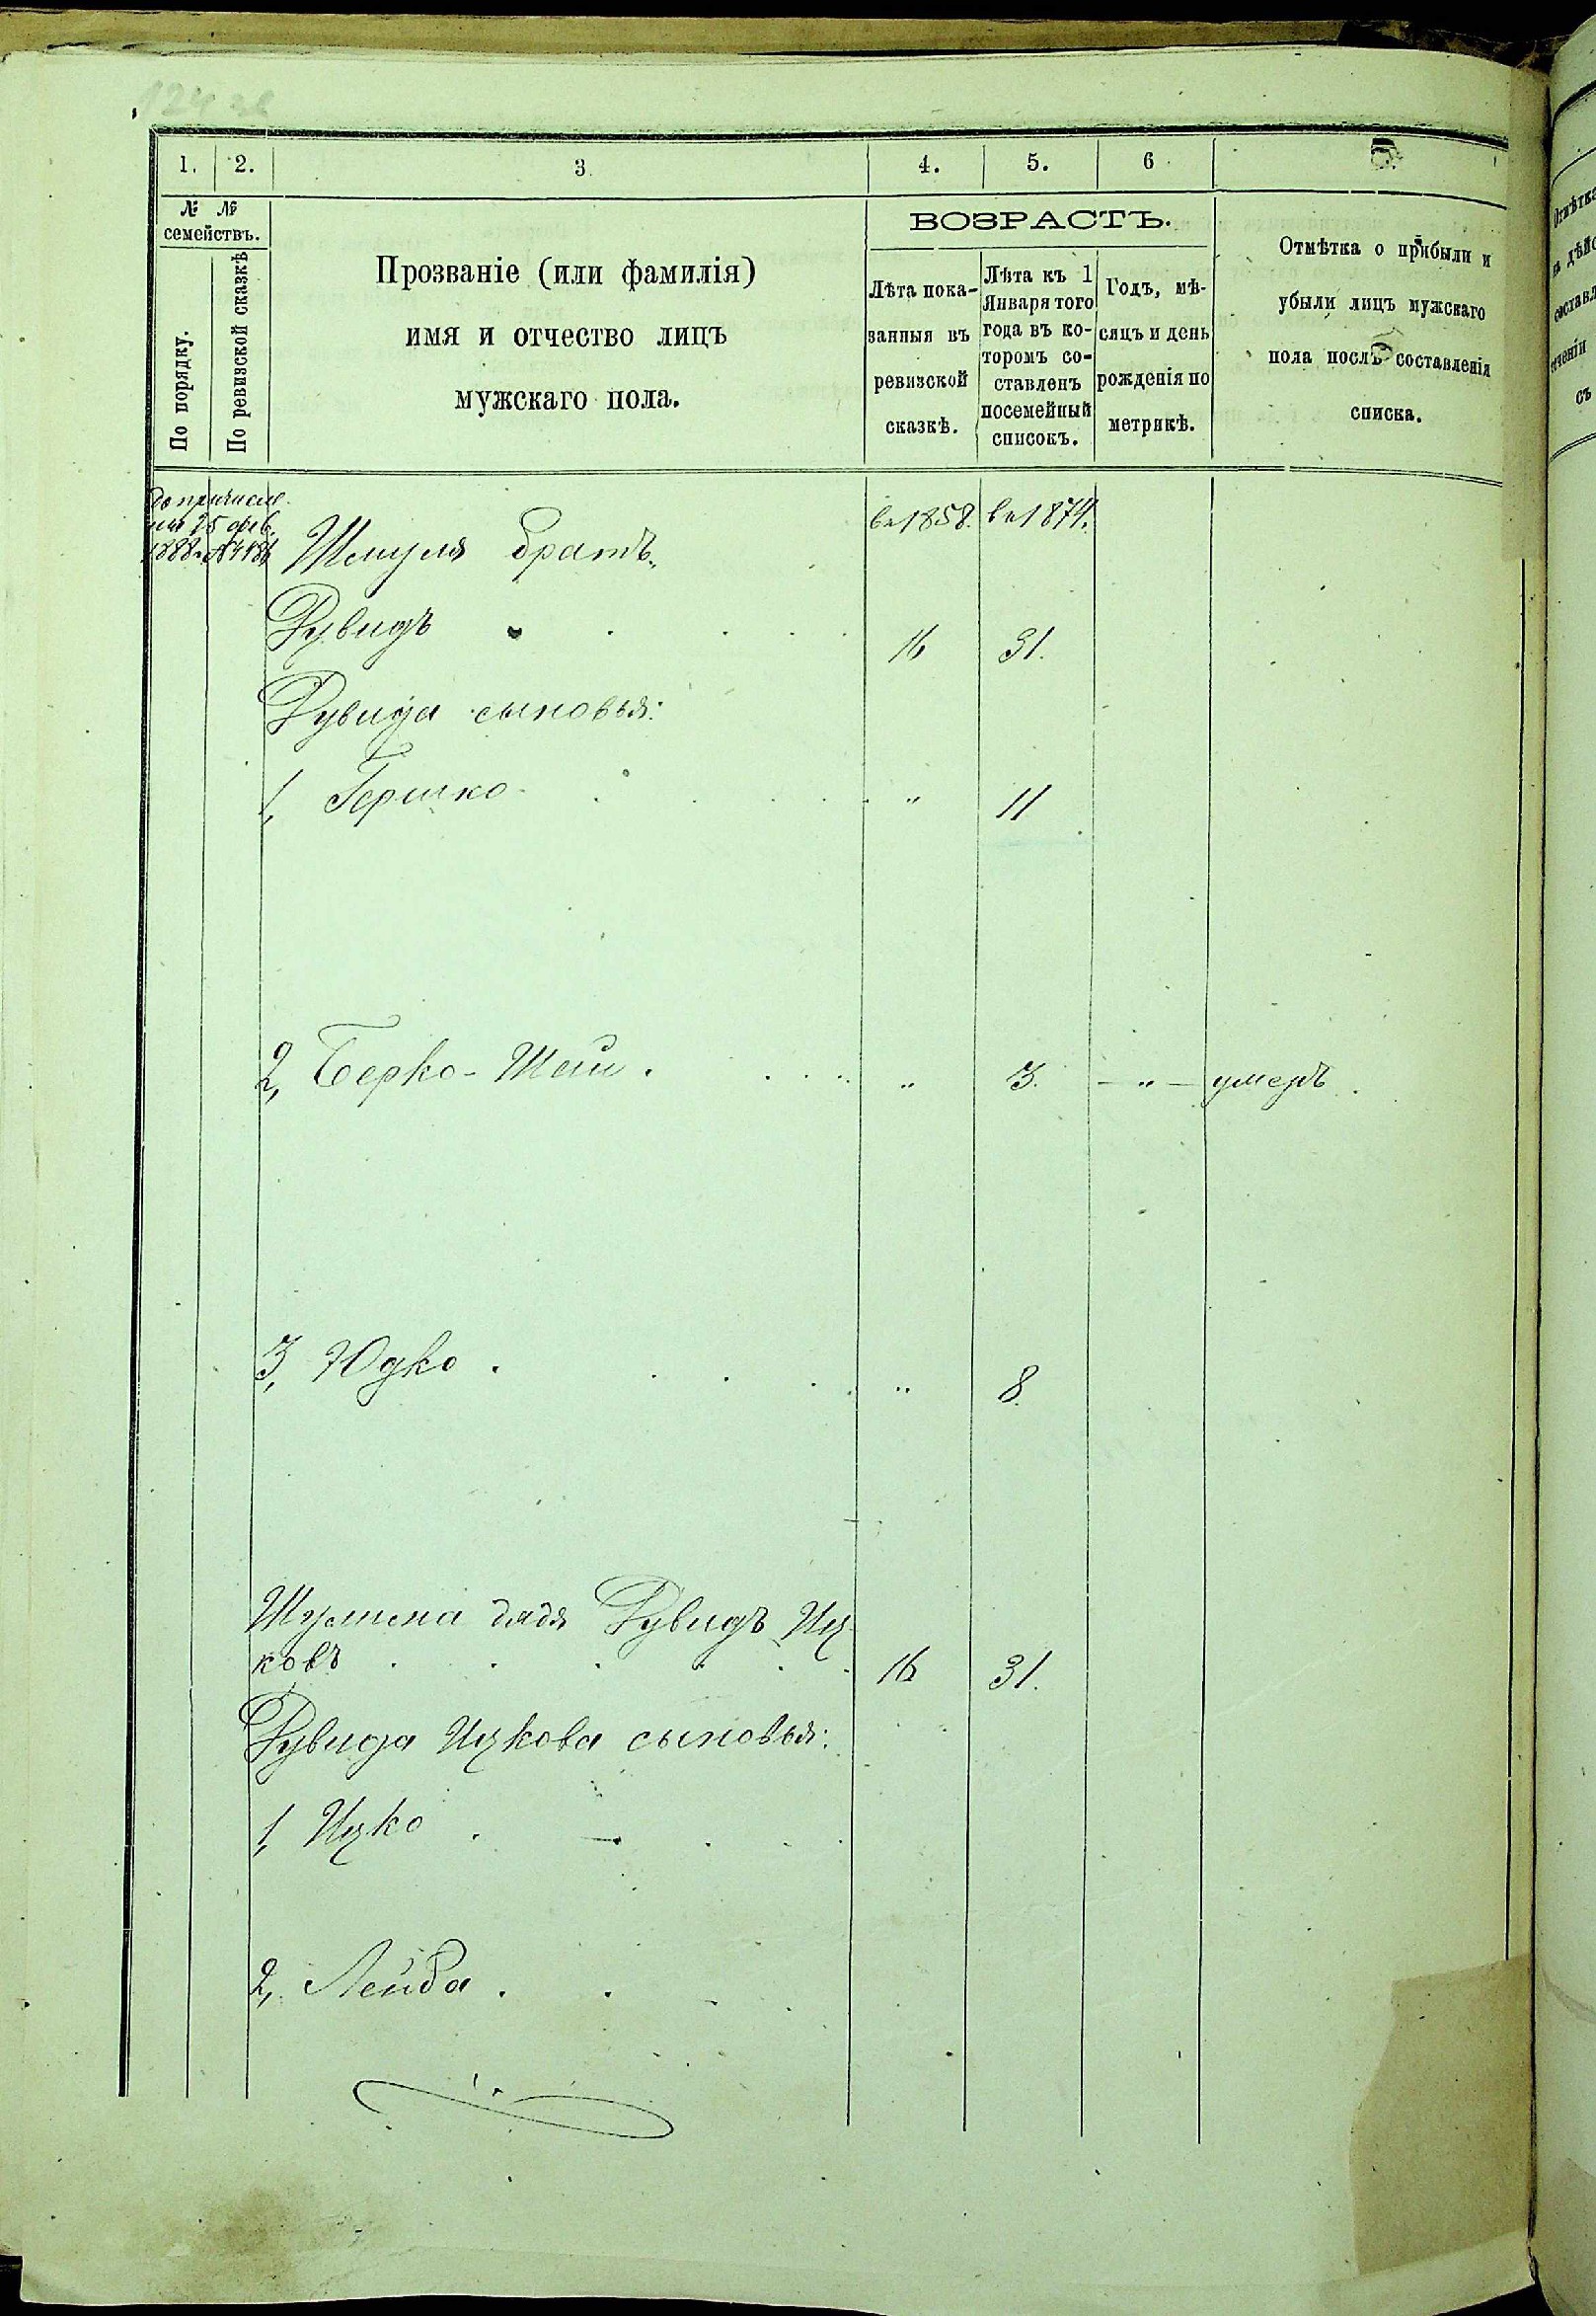 124 об
1. 2. 3. 4. 5. 6
№ № семействъ.
По порядку.
По ревизской сказкѣ
Прозваніе (или фамилія)
имя и отчество лицъ
мужскаго пола.
ВОЗРАСТЪ.
Лѣта пока-
занныя въ
ревизской
сказкѣ.
Лѣта къ 1
Января того
года въ ко-
торомъ со-
ставленъ
посемейный
списокъ.
Годъ, мѣ-
сяцъ и день
рожденія по
метрикѣ.
Отмѣтка о прибыли и
убыли лицъ мужскаго
пола послѣ составленія
списка.
25 фев.
1888
въ 1858. въ 1874.
Шмуля братъ
Рувидъ 16 31.
Рувида сыновья:
1, Гершко " 11
2, Берко-Шая " 3. - " - умеръ
3, Юдко " 8
дядя Рувидъ Иц
ковъ 16 31.
Рувида Ицкова сыновья:
1, Ицко
2, Лейба